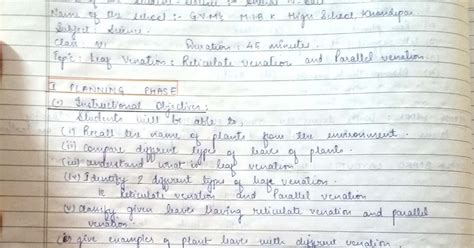 Name of the School :- G.V.M's M.I.B.K High School, Khandepar
Subject : Science.
Class VI Duration : 45 minutes.
Topic : Leaf Venation : Reticulate venation and Parallel venation.
I PLANNING PHASE
(i) Instructional Objectives:
Students will be able to,
(i) Recall the name of plants from the environment.
(ii) compare different types of leaves of plants.
(iii) understand what is leaf venation.
(iv) Identify 2 different type of leafe venation.
ie Reticulate venation and Parallel venation
(v) classify given leaves having reticulate venation and parallel
venation.
give examples of plant leaves with different venation